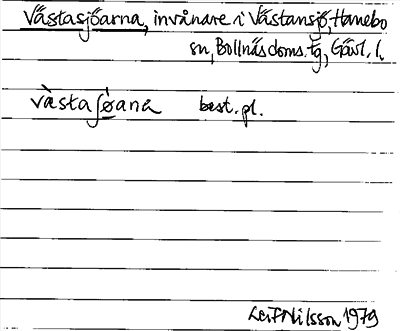 Västasjöarna, invånare i Västansjö, Hanebo
sn, Bollnäs doms. tg, Gävl. l.
västasjøana best. pl.
Leif Nilsson 1979